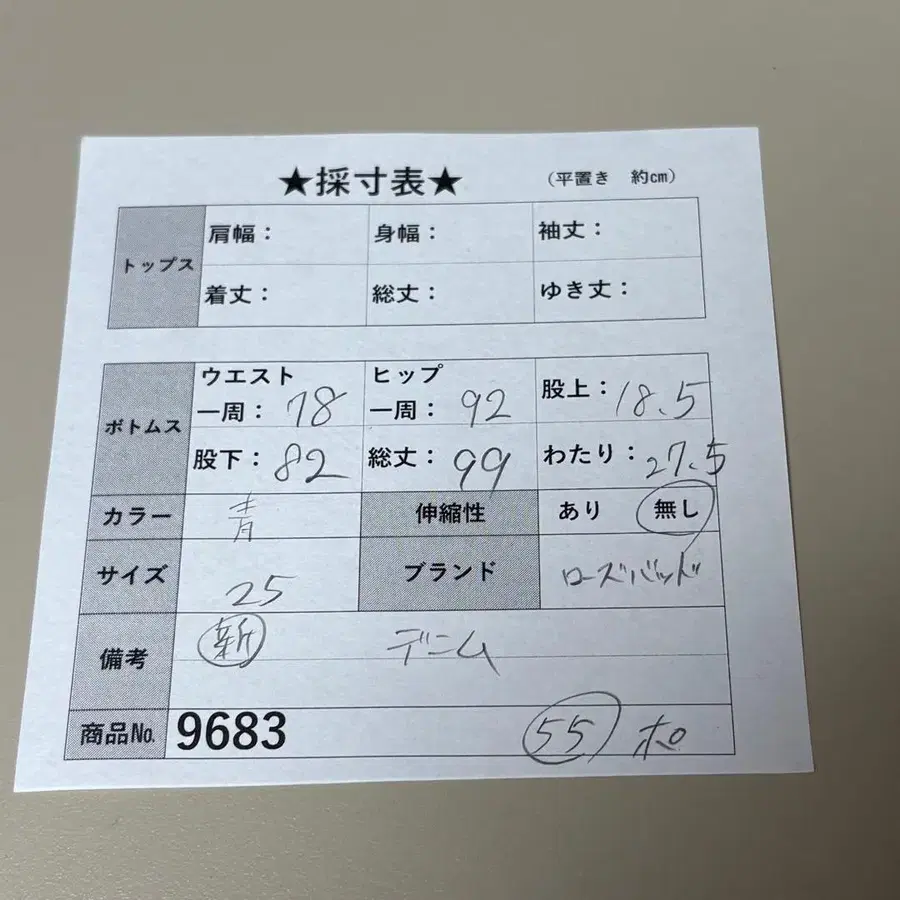 ★採寸表★ (平置き 約cm)
トップス 肩幅： 身幅： 袖丈：
着丈： 総丈： ゆき丈：
ボトムス ウエスト一周：78 ヒップ一周：92 股上：18.5
股下：82 総丈：99 わたり：27.5
カラー 青 伸縮性 あり 無し
サイズ 25 ブランド ローズバッド
備考 新 デニム
商品No. 9683 55 ポ